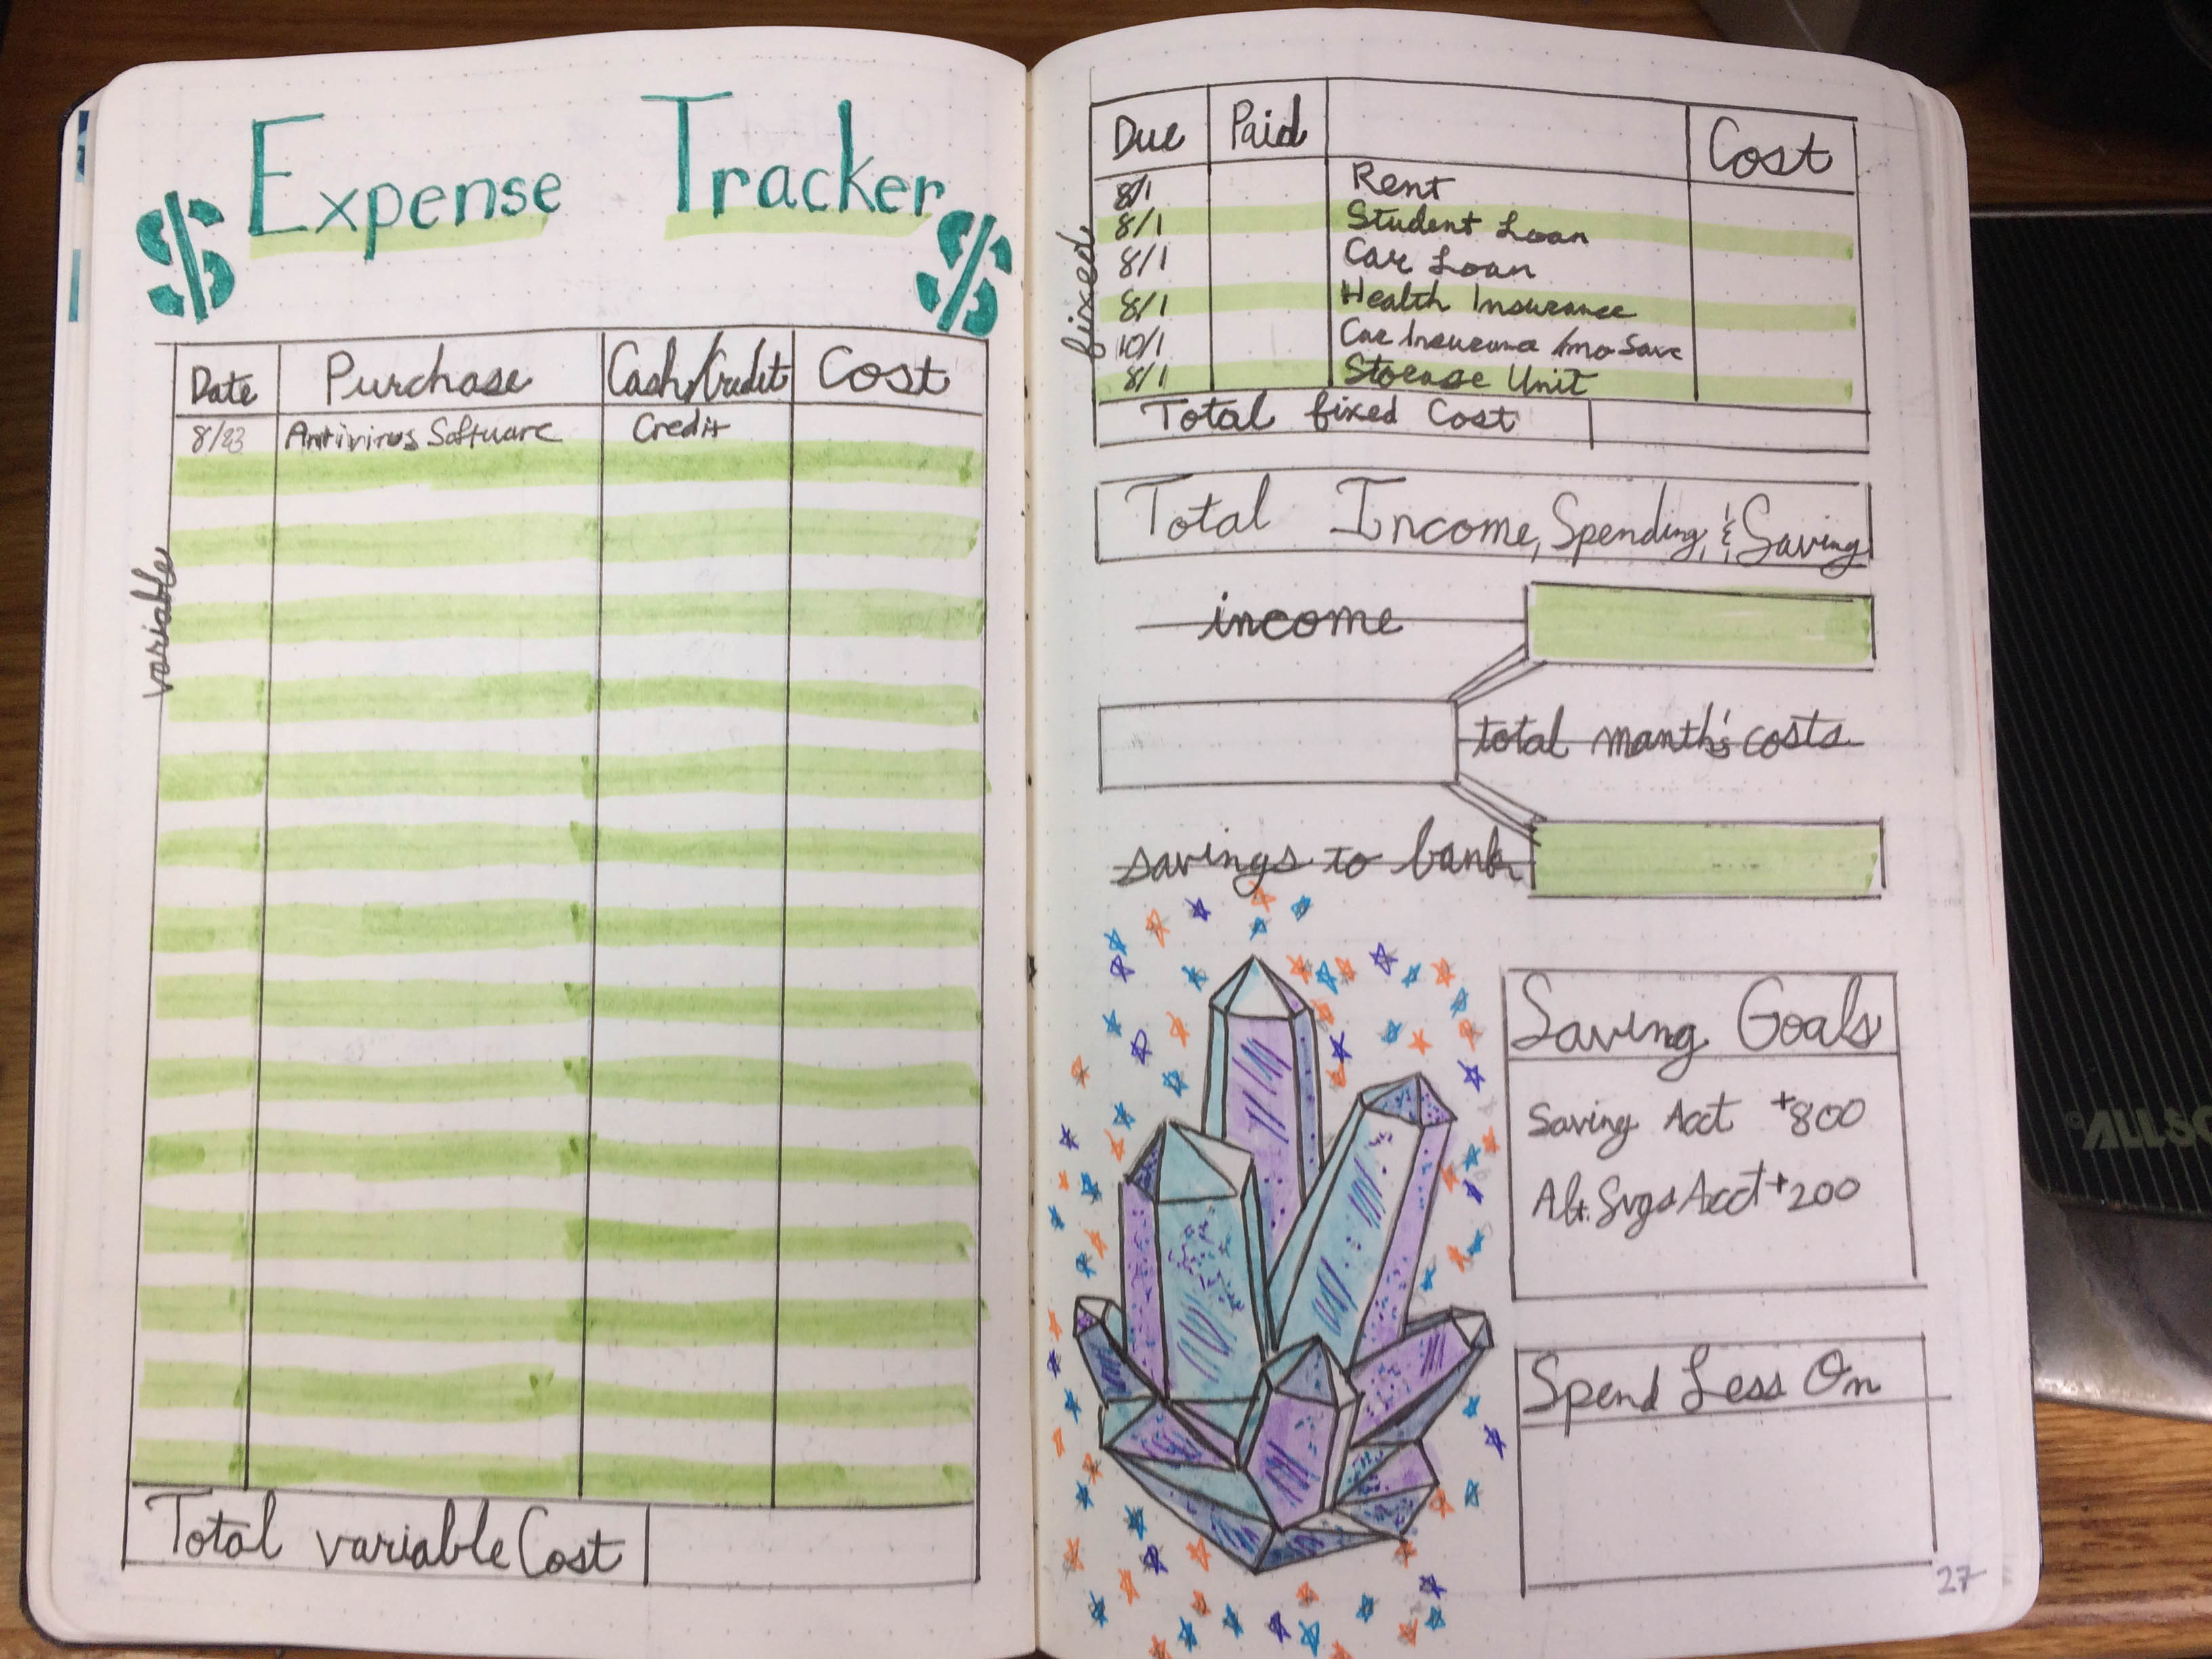 $ Expense Tracker $
variable
Date Purchase Cash/Credit Cost
8/23 Antivirus Software Credit
Total variable Cost
fixed
Due Paid Cost
8/1 Rent
8/1 Student Loan
8/1 Car Loan
8/1 Health Insurance
10/1 Car Insurance /mo Save
8/1 Storage Unit
Total fixed Cost
Total Income, Spending, & Saving
income
total month's costs
savings to bank
Saving Goals
Saving Acct +800
Alt. Svgs Acct +200
Spend Less On
27